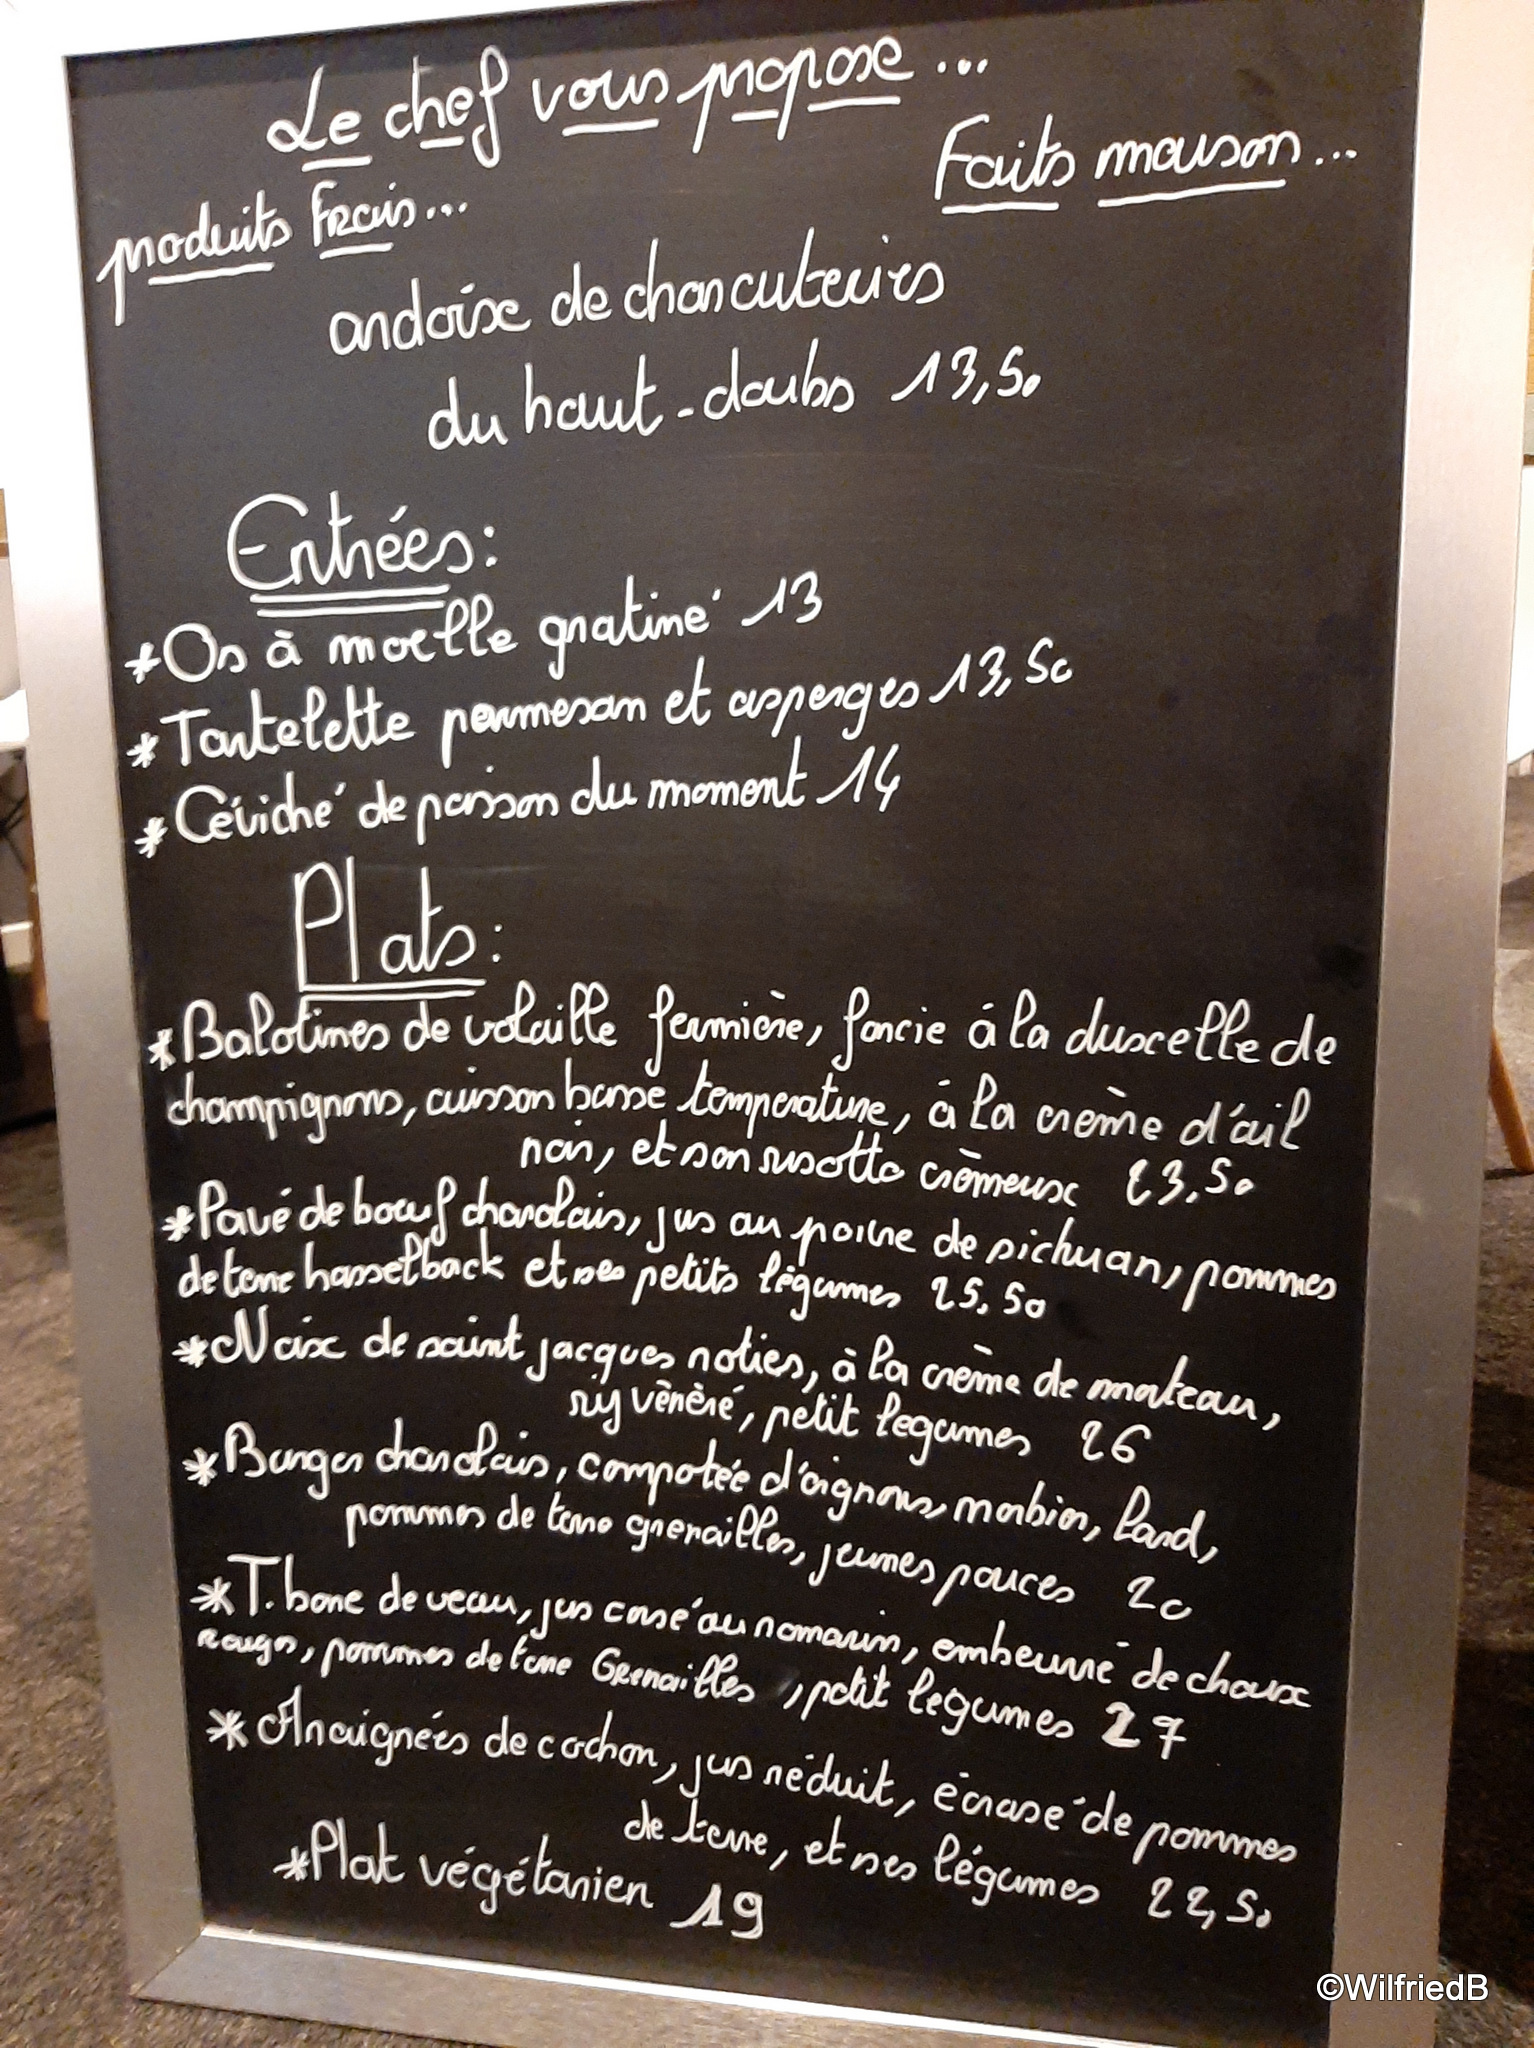 Le chef vous propose...
Faits maison...
produits frais...
ardoise de charcuteries
du haut-doubs 13,50
Entrées:
*Os à moelle gratiné 13
*Tartelette parmesan et asperges 13,50
*Céviché de poisson du moment 14
Plats:
*Balotines de volaille fermière, farcie à la duxcelle de
champignons, cuisson basse temperature, à la crème d'ail
noir, et son risotto crèmeux 23.50
*Pavé de boeuf charolais, jus au poivre de sichuan, pommes
de terre hasselback et ses petits légumes 25.50
*Noix de saint jacques roties, à la crème de morteau,
riz vènèré, petit legumes 26
*Burger charolais, compotée d'oignons, morbier, lard,
pommes de terre grenailles, jeunes pouces 20
*T.bone de veau, jus corsé au romarin, embeurré de choux
rouges, pommes de terre Grenailles, petit legumes 27
*Araignées de cochon, jus réduit, écrasé de pommes
de terre, et ses légumes 22,50
*Plat végétarien 19
©WilfriedB